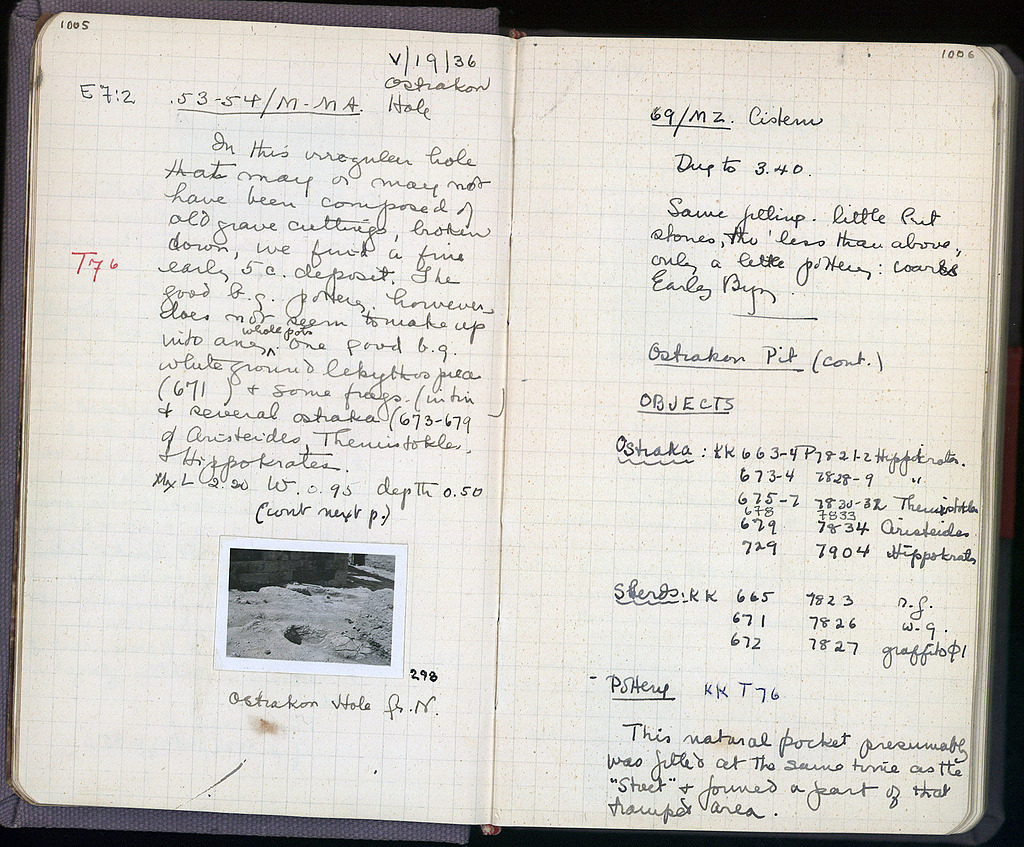 1005
V/19/36
Ostrakon
E 7:2 .53-54/M-MA. Hole
In this irregular hole
that may or may not
have been composed of
old grave cuttings, broken
down, we find a fine
T76
early 5 c. deposit. The
good b.g. pottery, however
does not seem to make up
into any whole pots. One good b.g.
white ground lekythos piece
(671 ) & some frags. (in tin )
& several ostraka (673-679
of Aristeides, Themistokles,
& Hippokrates.
Mx L 2.20 W. 0.95 depth 0.50
(cont next p.)
298
Ostrakon Hole fr. N.
1006
69/MZ. Cistern
Dug to 3.40.
Same filling. little but
stones, tho' less than above,
only a little pottery: coarse
Early Byz.
Ostrakon Pit (cont.)
OBJECTS
Ostraka: KK 663-4 P7821-2 Hippokrates.
673-4 7828-9 "
675-7 7830-32 Themistokles
678 7833
679 7834 Aristeides
729 7904 Hippokrates
Sherds: KK 665 7823 r.f.
671 7826 w-g.
672 7827 graffito φ1
- Pottery KK T76
This natural pocket presumably
was filled at the same time as the
"Street" & formed a part of that
tramped area.